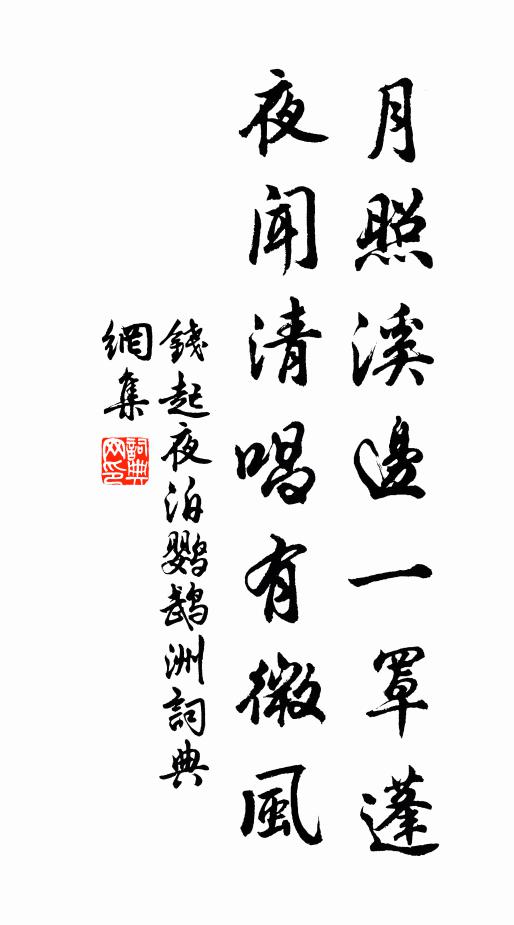 月照溪邊一罩蓬
夜聞清唱有微風
錢起夜泊鸚鵡洲詞典
網集
詞典
网印